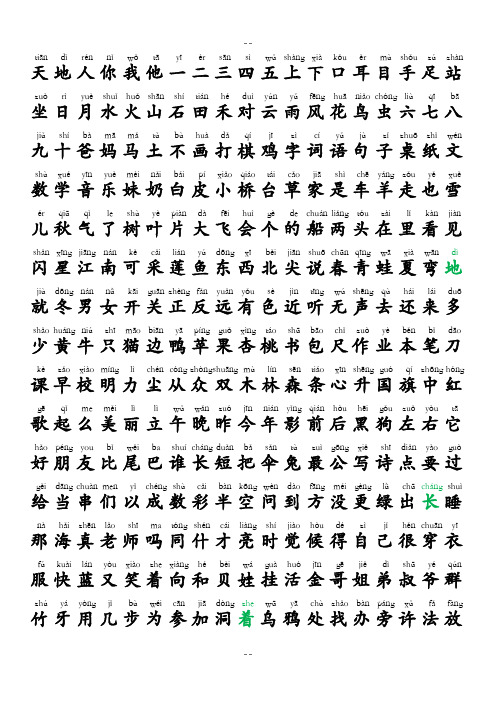 --
tiān dì rén nǐ wǒ tā yī èr sān sì wǔ shàng xià kǒu ěr mù shǒu zú zhàn
天 地 人 你 我 他 一 二 三 四 五 上 下 口 耳 目 手 足 站
zuò rì yuè shuǐ huǒ shān shí tián hé duì yún yǔ fēng huā niǎo chóng liù qī bā
坐 日 月 水 火 山 石 田 禾 对 云 雨 风 花 鸟 虫 六 七 八
jiǔ shí bà mā mǎ tǔ bù huà dǎ qí jī zì cí yǔ jù zǐ zhuō zhǐ wén
九 十 爸 妈 马 土 不 画 打 棋 鸡 字 词 语 句 子 桌 纸 文
shù xué yīn yuè mèi nǎi bái pí xiǎo qiáo tái cǎo jiā shì chē yáng zǒu yě xuě
数 学 音 乐 妹 奶 白 皮 小 桥 台 草 家 是 车 羊 走 也 雪
ér qiū qì le shù yè piàn dà fēi huì gè de chuán liǎng tóu zài lǐ kàn jiàn
儿 秋 气 了 树 叶 片 大 飞 会 个 的 船 两 头 在 里 看 见
shǎn xīng jiāng nán kě cǎi lián yú dōng xī běi jiān shuō chūn qīng wā xià wān dì
闪 星 江 南 可 采 莲 鱼 东 西 北 尖 说 春 青 蛙 夏 弯 地
jiù dōng nán nǚ kāi guān zhèng fǎn yuǎn yǒu sè jìn tīng wú shēng qù hái lái duō
就 冬 男 女 开 关 正 反 远 有 色 近 听 无 声 去 还 来 多
shǎo huáng niú zhī māo biān yā píng guǒ xìng táo shū bāo chǐ zuò yè běn bǐ dāo
少 黄 牛 只 猫 边 鸭 苹 果 杏 桃 书 包 尺 作 业 本 笔 刀
kè zǎo xiào míng lì chén cóng zhòng shuāng mù lín sēn tiáo xīn shēng guó qí zhōng hóng
课 早 校 明 力 尘 从 众 双 木 林 森 条 心 升 国 旗 中 红
gē qǐ me měi lì lì wǔ wǎn zuó jīn nián yǐng qián hòu hēi gǒu zuǒ yòu tā
歌 起 么 美 丽 立 午 晚 昨 今 年 影 前 后 黑 狗 左 右 它
hǎo péng you bǐ wěi ba shuí cháng duǎn bǎ sǎn tù zuì gōng xiě shī diǎn yào guò
好 朋 友 比 尾 巴 谁 长 短 把 伞 兔 最 公 写 诗 点 要 过
gěi dāng chuàn men yǐ chéng shù cǎi bàn kōng wèn dào fāng méi gèng lǜ chū cháng shuì
给 当 串 们 以 成 数 彩 半 空 问 到 方 没 更 绿 出 长 睡
nà hǎi zhēn lǎo shī ma tóng shén cái liàng shí jiào hòu dé zì jǐ hěn chuān yī
那 海 真 老 师 吗 同 什 才 亮 时 觉 候 得 自 己 很 穿 衣
fú kuài lán yòu xiào zhe xiàng hé bèi wá guà huó jīn gē jiě dì shū yé qún
服 快 蓝 又 笑 着 向 和 贝 娃 挂 活 金 哥 姐 弟 叔 爷 群
zhú yá yòng jǐ bù wéi cān jiā dòng zhe wū yā chù zhǎo bàn páng xǔ fǎ fàng
竹 牙 用 几 步 为 参 加 洞 着 乌 鸦 处 找 办 旁 许 法 放
--